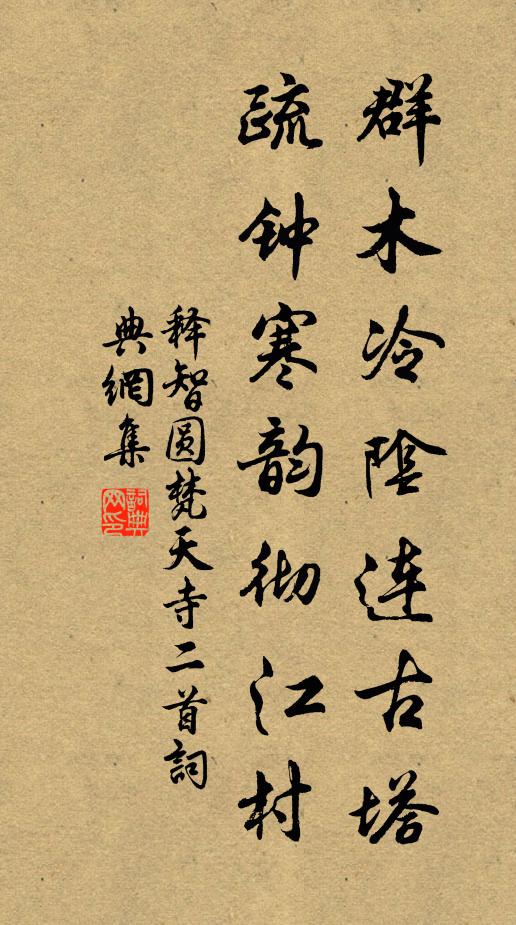 群木冷陰连古塔
疏钟寒韵彻江村
释智圆梵天寺二首詞
典網集
詞典網印